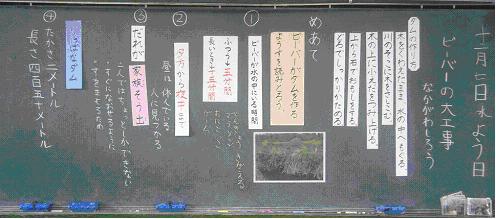 十二月七日水よう日
ビーバーの大工事
なかがわしろう
ダムの作り方
木をくわえたまま水の中へもぐる
川のそこに木をさしこむ
木の上に小えだをつみ上げる。
上から石でおもしをする
どろでしっかりかためる
めあて
ビーバーがダムを作る
ようすを読みとろう。
①
ビーバーが水の中にいる時間
ふつう→五分間
長いとき→十五分間
②
夕方から夜中まで
昼は休んでる
人に見つかる
③
だれが 家族そう出
一人ではちょっとしかできない
④
りっぱなダム
たかさ二メートル
長さ四百五十メートル